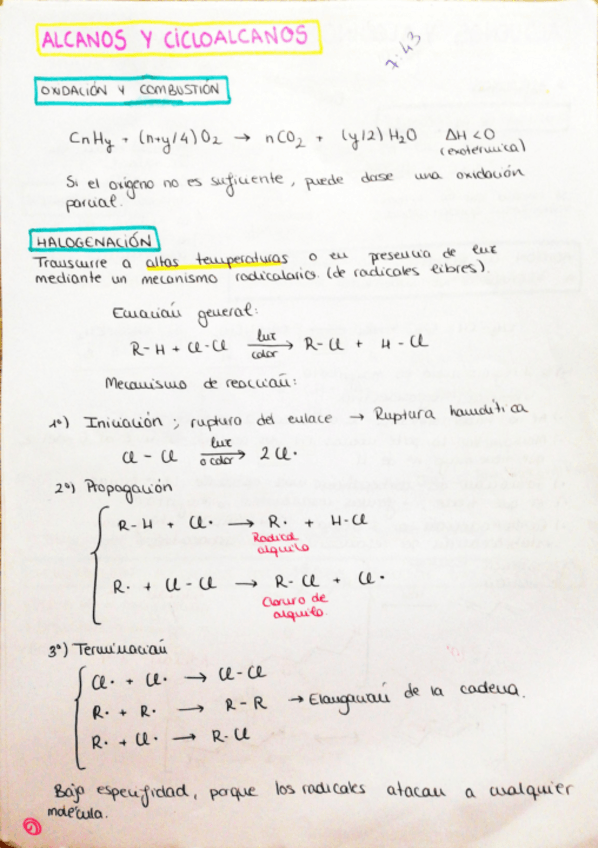 ALCANOS Y CICLOALCANOS
7:43
OXIDACIÓN Y COMBUSTIÓN
CnHy + (n+y/4)O2 → nCO2 + (y/2)H2O ΔH<0
(exotermica)
Si el oxígeno no es suficiente, puede darse una oxidación
parcial.
HALOGENACIÓN
Transcurre a altas temperaturas o en presencia de luz
mediante un mecanismo radicalario. (de radicales libres)
Ecuación general:
luz
R-H + Cl-Cl → R-Cl + H-Cl
calor
Mecanismo de reacción:
1º) Iniciación ; ruptura del enlace → Ruptura homolítica
luz
Cl - Cl → 2Cl·
o calor
2º) Propagación
R-H + Cl· → R· + H-Cl
Radical
alquilo
R· + Cl-Cl → R-Cl + Cl·
Cloruro de
alquilo.
3º) Terminación
Cl· + Cl· → Cl-Cl
R· + R· → R-R → Elongación de la cadena.
R· + Cl· → R-Cl
Baja especifidad, porque los radicales atacan a cualquier
molécula.